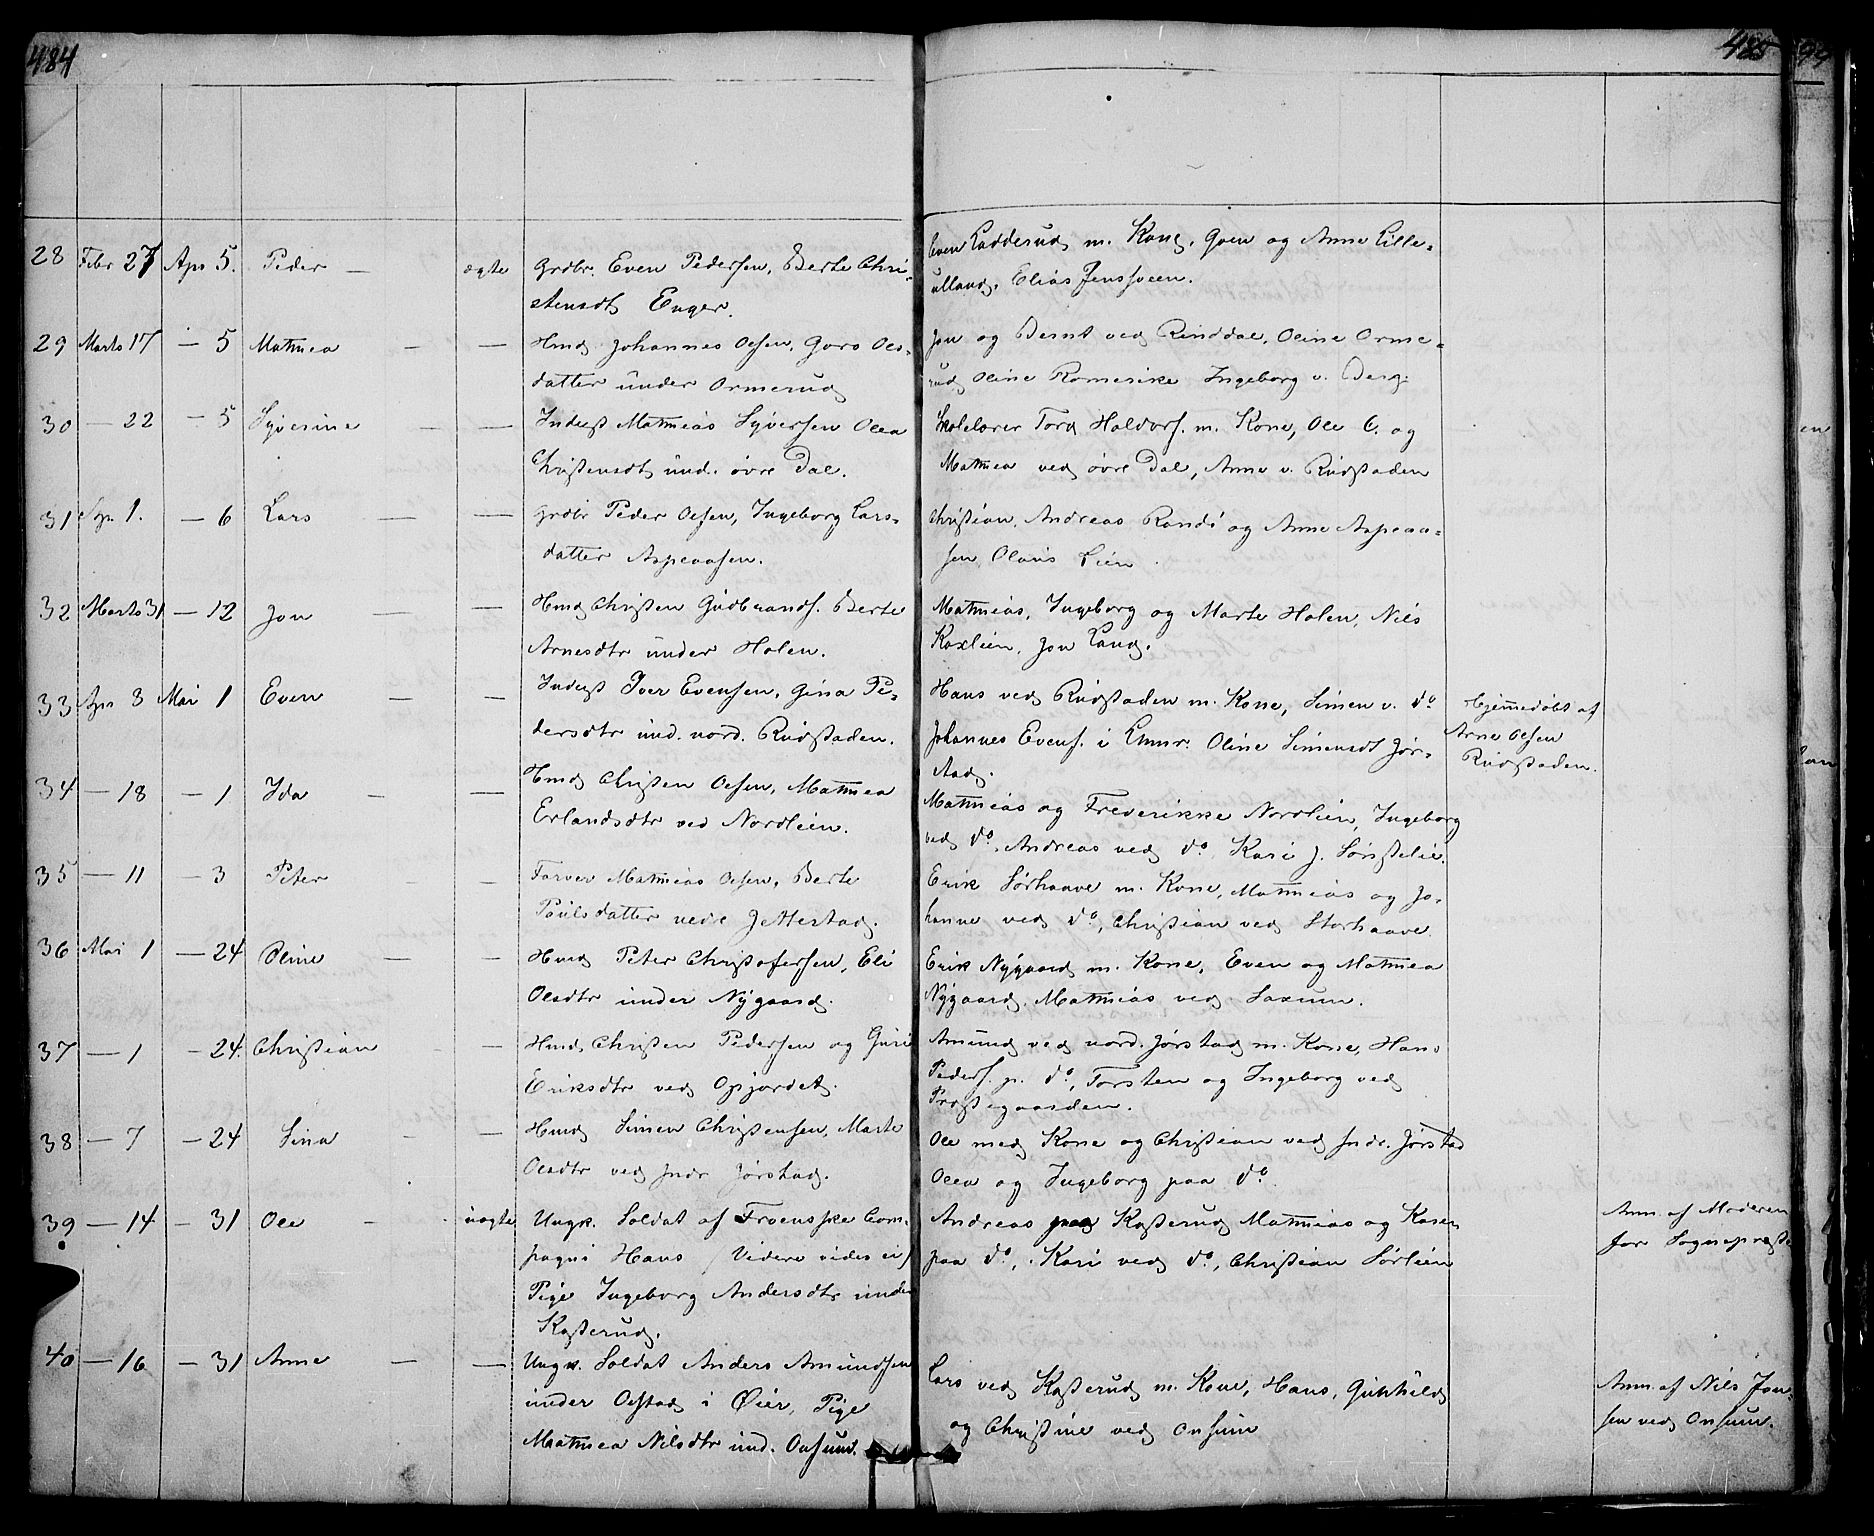 484
485
28 Febr 27 Apr 5. Peder — ægte Grdbr. Even Pedersen, Berte Chri-
stensdt Enger.
Even Ladderud m. Kone, Goen og Anne Lille-
ulland, Elias Jenssveen.
29 Marts 17 — 5 Mathea — — Hmd Johannes Olsen, Goro Ols-
datter under Ormerud
Jon og Bernt ved Rinddal, Oline Orme-
rud Oline Romerike Ingeborg v. Berg.
30 — 22 — 5 Syverine — — Inderst Mathias Syversen Olea
Christensdt und. øvre Dal.
Skolelærer Tord Haldors. m. Kone, Ole C. og
Mathea ved øvre Dal, Anne v. Rudstaden
31 Apr. 1. — 6 Lars — — Grdbr Peder Olsen, Ingeborg Lars-
datter Aspeaasen.
Christian, Andreas Randi og Anne Aspeaa-
sen, Olaus Lien.
32 Marts 31 — 12 Jon — — Hmd Christen Gudbrands. Berte
Arnesdtr under Holen.
Mathias, Ingeborg og Marte Holen, Nils
Roxlien, Jon Land.
33 Apr 3 Mai 1 Even — — Inderst Iver Evensen, Gina Pe-
dersdtr und. nord. Rudstaden.
Hans ved Rudstaden m. Kone, Simen v. do
Johannes Evens. i Elnnr. Oline Simensdt Jør-
stad.
Hjemmedøbt af
Arne Olsen
Rudstaden.
34 — 18 — 1 Ida — — Hmd Christen Olsen, Mathea
Erlandsdtr ved Nordlien.
Mathias og Frederikke Nordlien, Ingeborg
ved do, Andreas ved do, Kari J. Sønstelie.
35 — 11 — 3 Peter — — Farver Mathias Olsen, Berte
Paulsdatter nedre Jetterstad.
Erik Sørhaave m. Kone, Mathias og Jo-
hanne ved do, Christian ved Storhaave.
36 Mai 1 — 24 Oline — — Hmd Peter Christofersen, Eli
Olsdtr under Nygaard.
Erik Nygaard m. Kone, Even og Mathea
Nygaard, Mathias ved Saxum.
37 — 1 — 24. Christian — — Hmd. Christen Pedersen og Guri
Eriksdtr ved Opjordet.
Amund ved nord. Jørstad m. Kone, Hans
Peders. p. do, Torsten og Ingeborg ved
Prestegaarden.
38 — 7 — 24 Sina — — Hmd Simen Christensen, Marte
Olsdtr ved Indr Jørstad.
Ole med Kone og Christian ved Indr. Jørstad
Olea og Ingeborg paa do.
39 — 14 — 31 Ole — uægte Ungk. Soldat af Froenske Com-
pagni Hans / Videre vides ei /
Pige Ingeborg Andersdtr under
Kasterud.
Andreas paa Kasterud Mathias og Karen
paa do, Kari ved do, Christian Sørlien
Ann. af Moderen
for Sognepræst
40 — 16 — 31 Anne — — Ungk. Soldat Anders Amundsen
under Olstad i Øier, Pige
Mathea Nilsdtr und. Onsum.
Lars ved Kasterud m. Kone, Hans, Gunhild
og Christine ved Onsum
Ann. af Nils Jon-
sen ved Onsum.